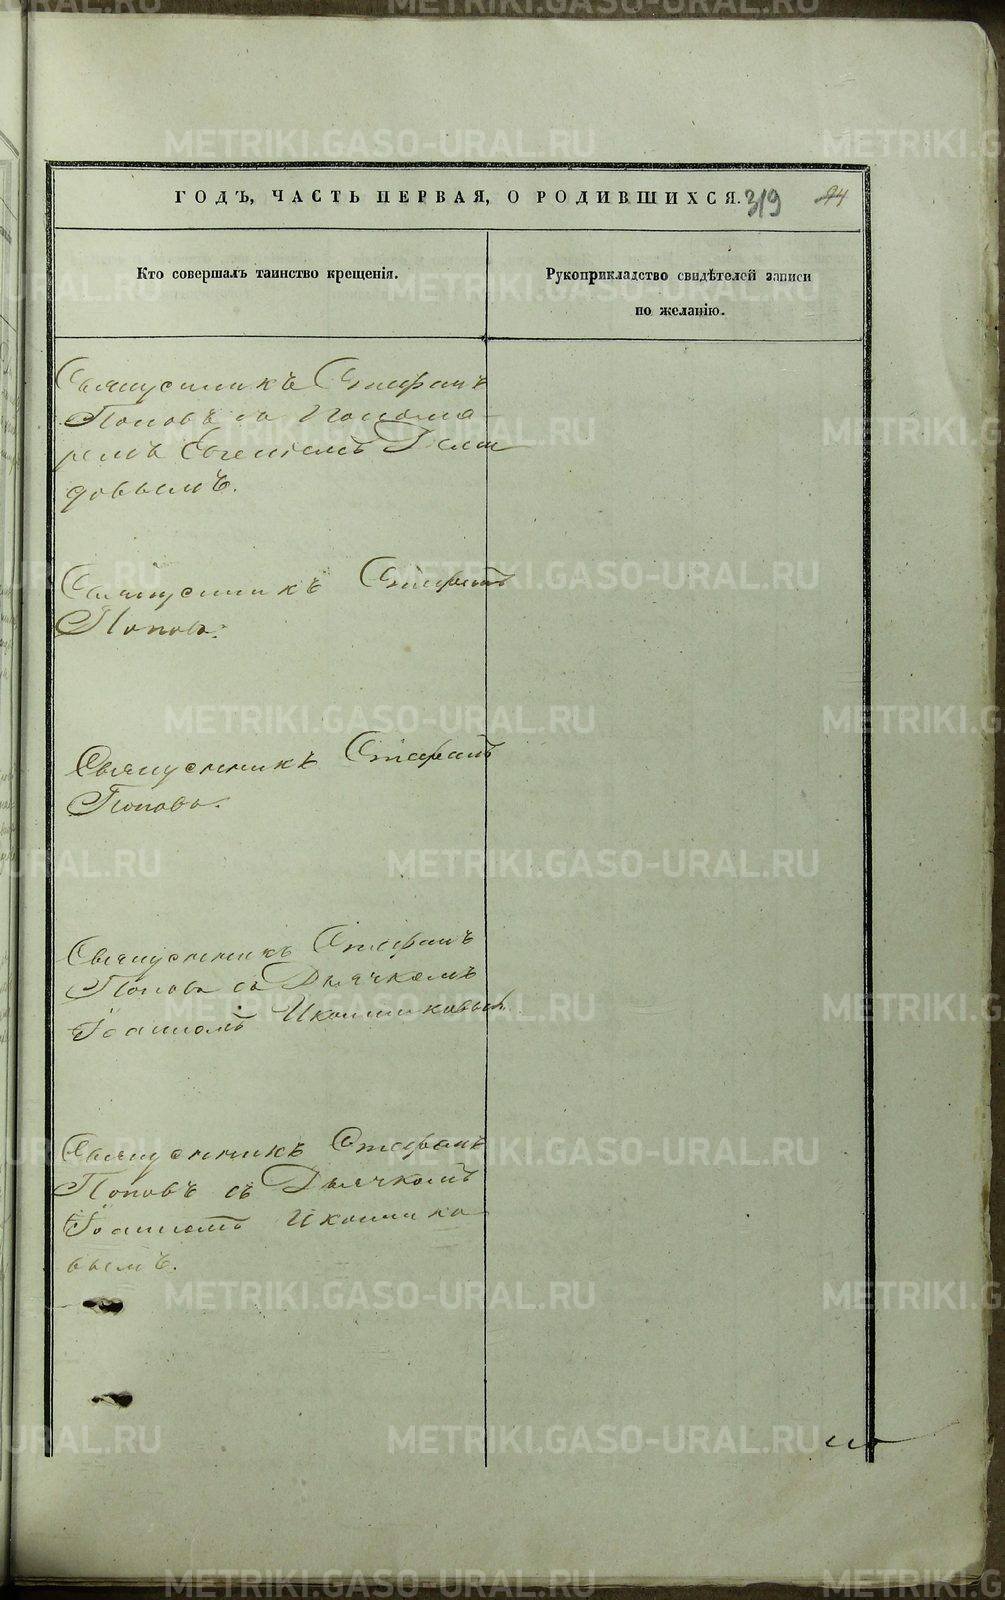 ГОДЪ, ЧАСТЬ ПЕРВАЯ, О РОДИВШИХСЯ. 319 94
Кто совершалъ таинство крещенія.
Рукоприкладство свидѣтелей записи
по желанію.
Священникъ Стефанъ
Поповъ съ Понома
ремъ Евгеніемъ Деми
довымъ.
Священникъ Стефанъ
Поповъ.
Священникъ Стефанъ
Поповъ.
Священникъ Стефанъ
Поповъ съ Дьячкомъ
Іоанномъ Иконниковымъ
Священникъ Стефанъ
Поповъ съ Дьячкомъ
Іоанномъ Иконнико
вымъ.
METRIKI.GASO-URAL.RU